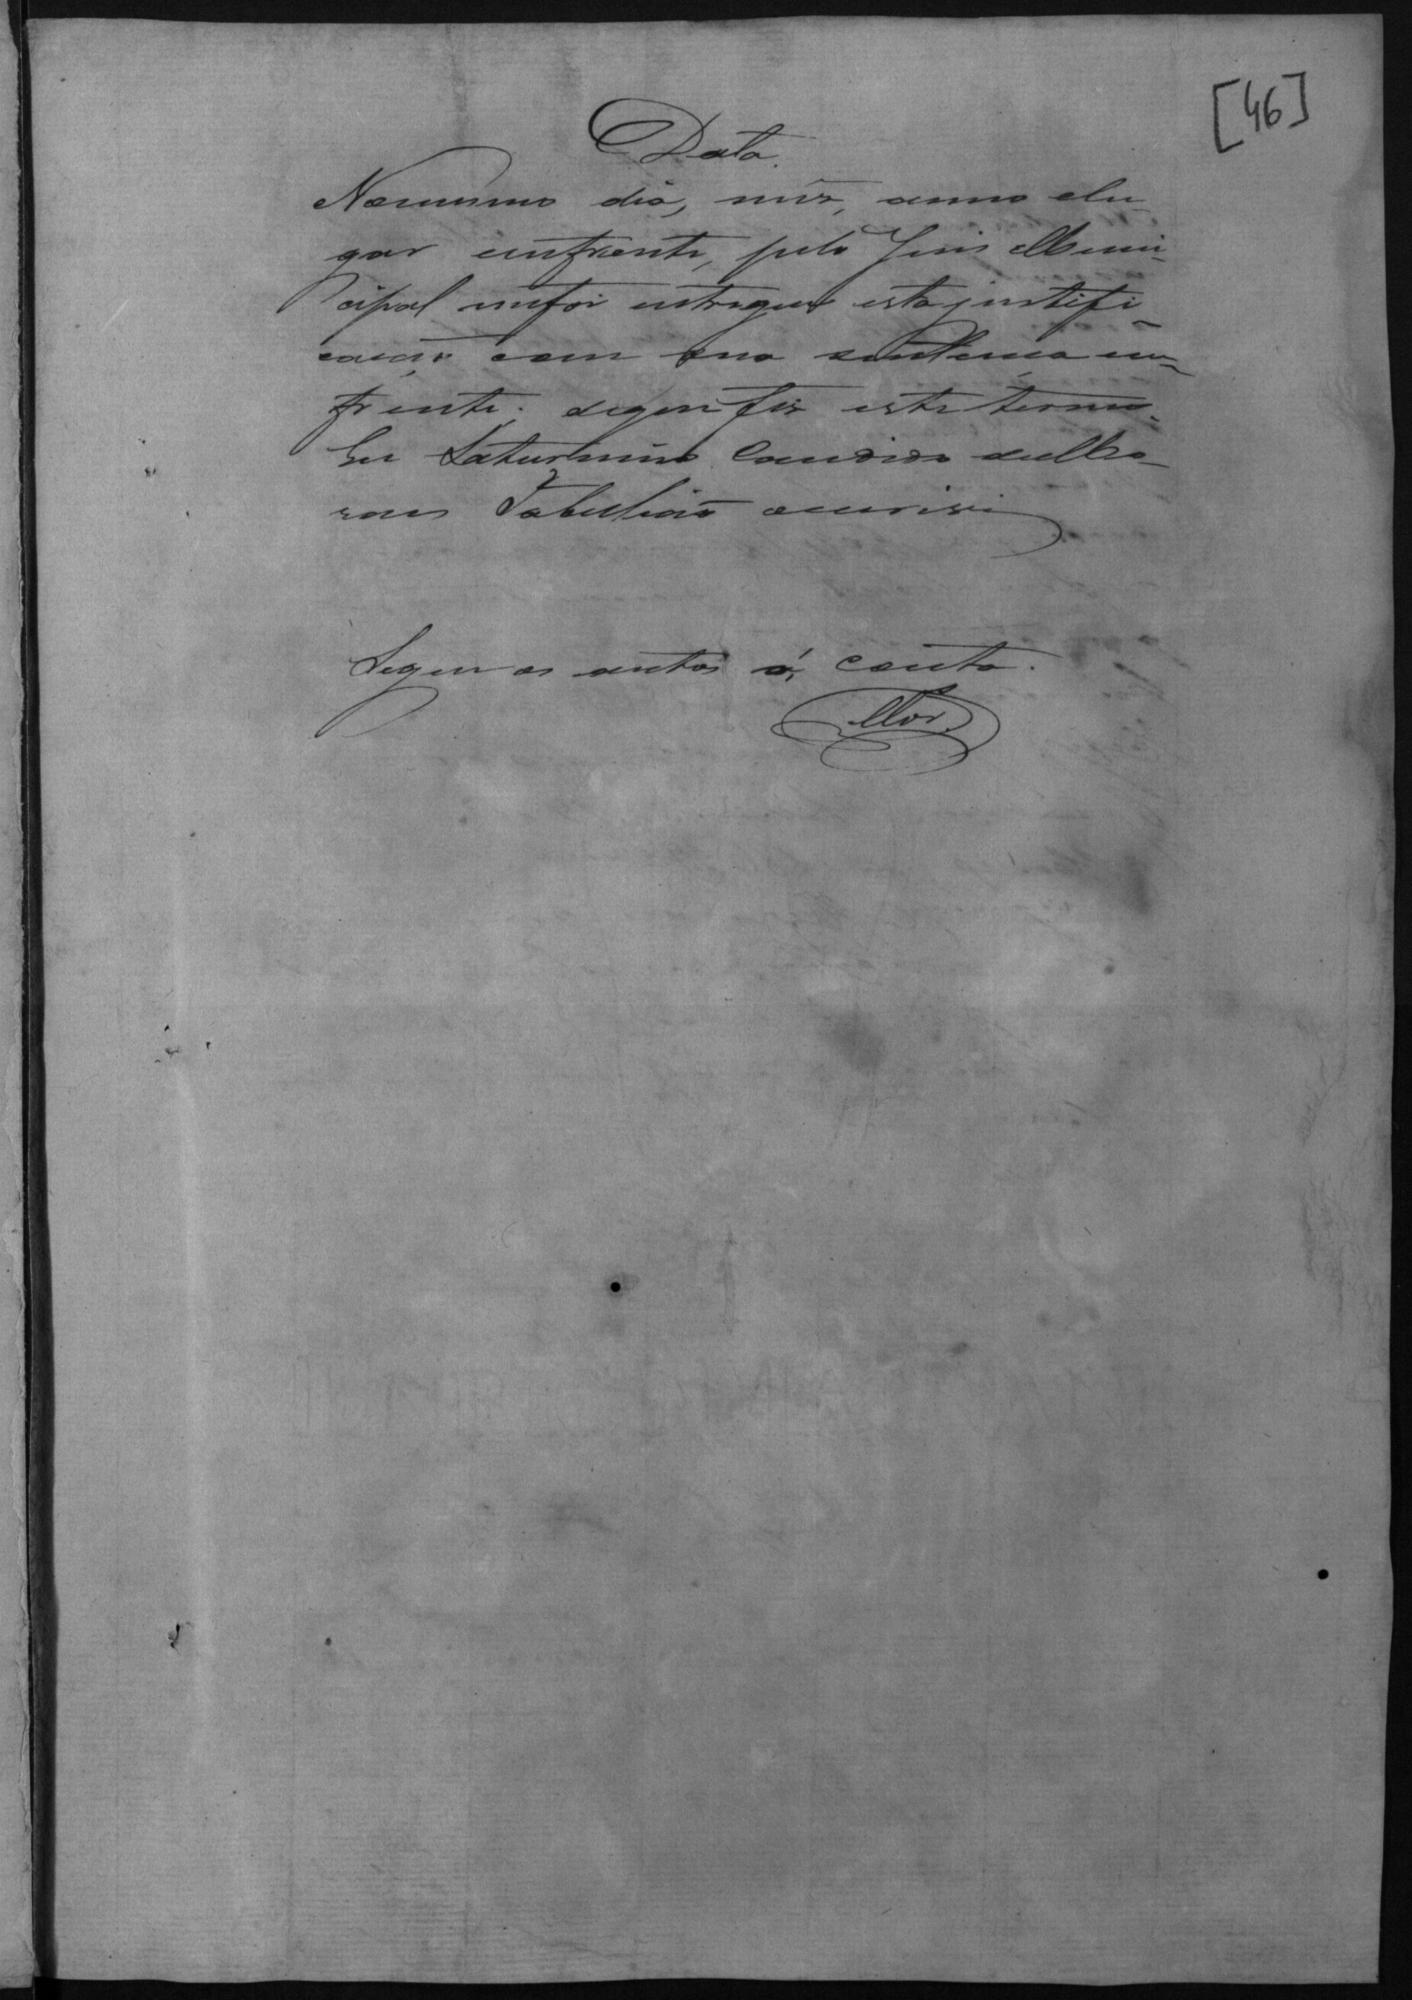 [46]
Data.
Nomesmo dia, mez, anno elu-
gar emfrente, pelo Juis Muni-
cipal mefoi entregue esta justifi-
cação com sua sentença em-
frente; dequi fiz este termo.
Eu Saturnino Candido deMo-
raes Tabellião escrivi
Segue os autos á conta.
Mor.